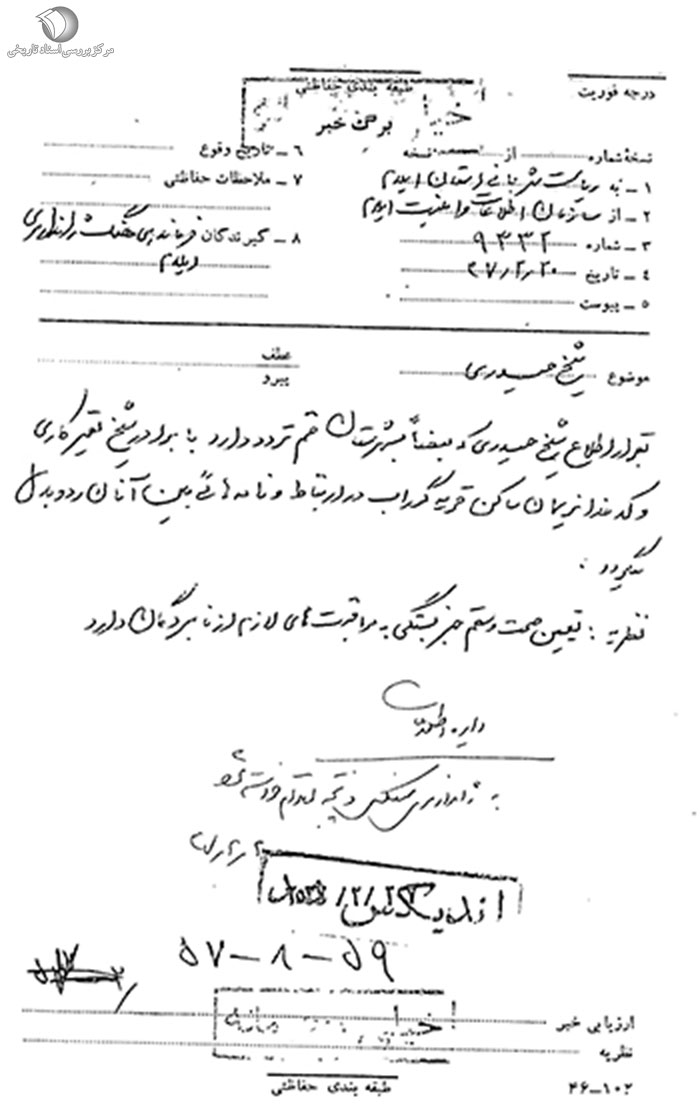 مرکز بررسی اسناد تاریخی
طبقه بندی حفاظتی
درجه فوریت
خیلی
برگ خبر
نسخهٔ شماره از نسخه
۱ – به ریاست شهربانی استان ایلام
۲ – از سازمان اطلاعات و امنیت ایلام
۳ – شماره ۹۳۳۲
۴ – تاریخ ۳۷/۲/۲۰
۵ – پیوست
۶ – تاریخ وقوع
۷ – ملاحظات حفاظتی
۸ – گیرندگان فرماندهی هنگ ژاندارمری
ایلام
موضوع شیخ حیدری
عطف
پیرو
برابر اطلاع شیخ حیدری که بعضاً بشهرستان قم تردد دارد با برادر شیخ کاری
و کدخدا نریمان ساکن قریه گراب در ارتباط و نامه هائی بین آنان رد و بدل
میگردد .
نظریه : تعیین صحت و سقم خبر بستگی به مراقبت های لازم از نامبردگان دارد
دایره اطلاعات
به ژاندارمری منعکس و نتیجه اقدام خواسته شود
۵۷-۸-۵۹
ارزیابی خبر
نظریه
طبقه بندی حفاظتی
۴۶–۱۰۲